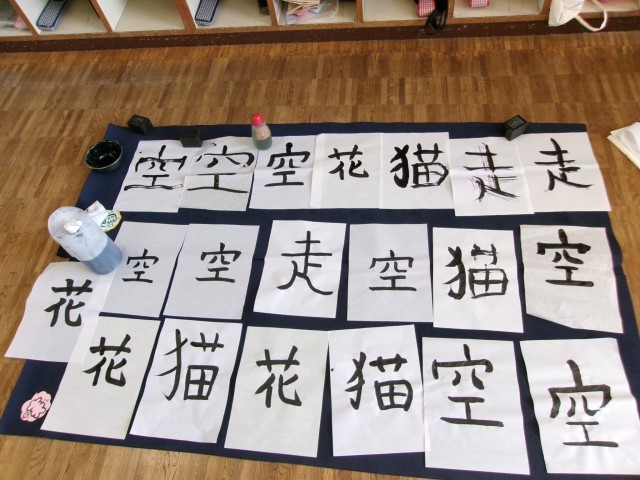 空 空 空 花 猫 走 走
花 空 空 走 空 猫 空
花 猫 花 猫 空 空